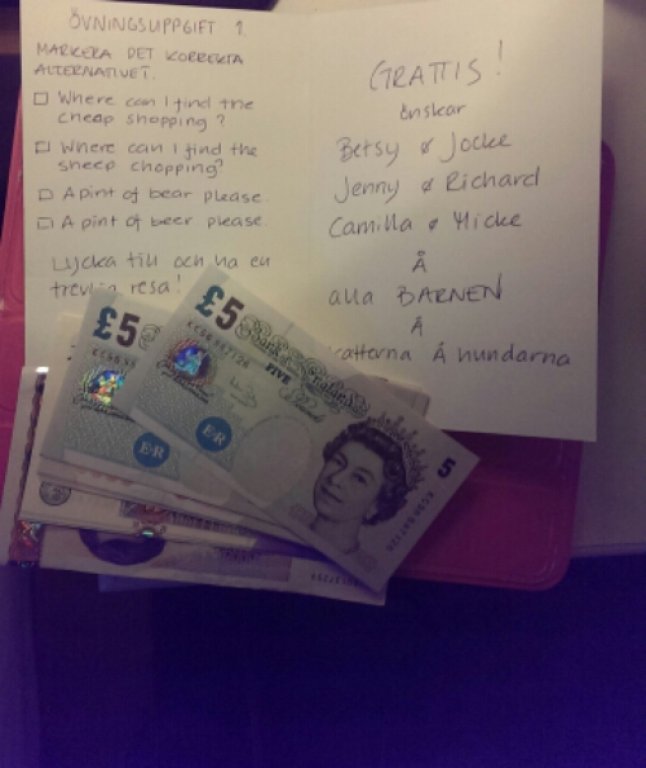 ÖVNINGSUPPGIFT 1.
MARKERA DET KORREKTA
ALTERNATIVET.
Where can I find the
cheap shopping?
Where can I find the
sheep chopping?
A pint of bear please.
A pint of beer please.
Lycka till och ha en
trevlig resa!
GRATTIS!
önskar
Betsy & Jocke
Jenny & Richard
Camilla & Micke
Å
alla BARNEN
Å
katterna Å hundarna
£5
£5
Bank of England
FIVE
Pounds
E·R
E·R
5